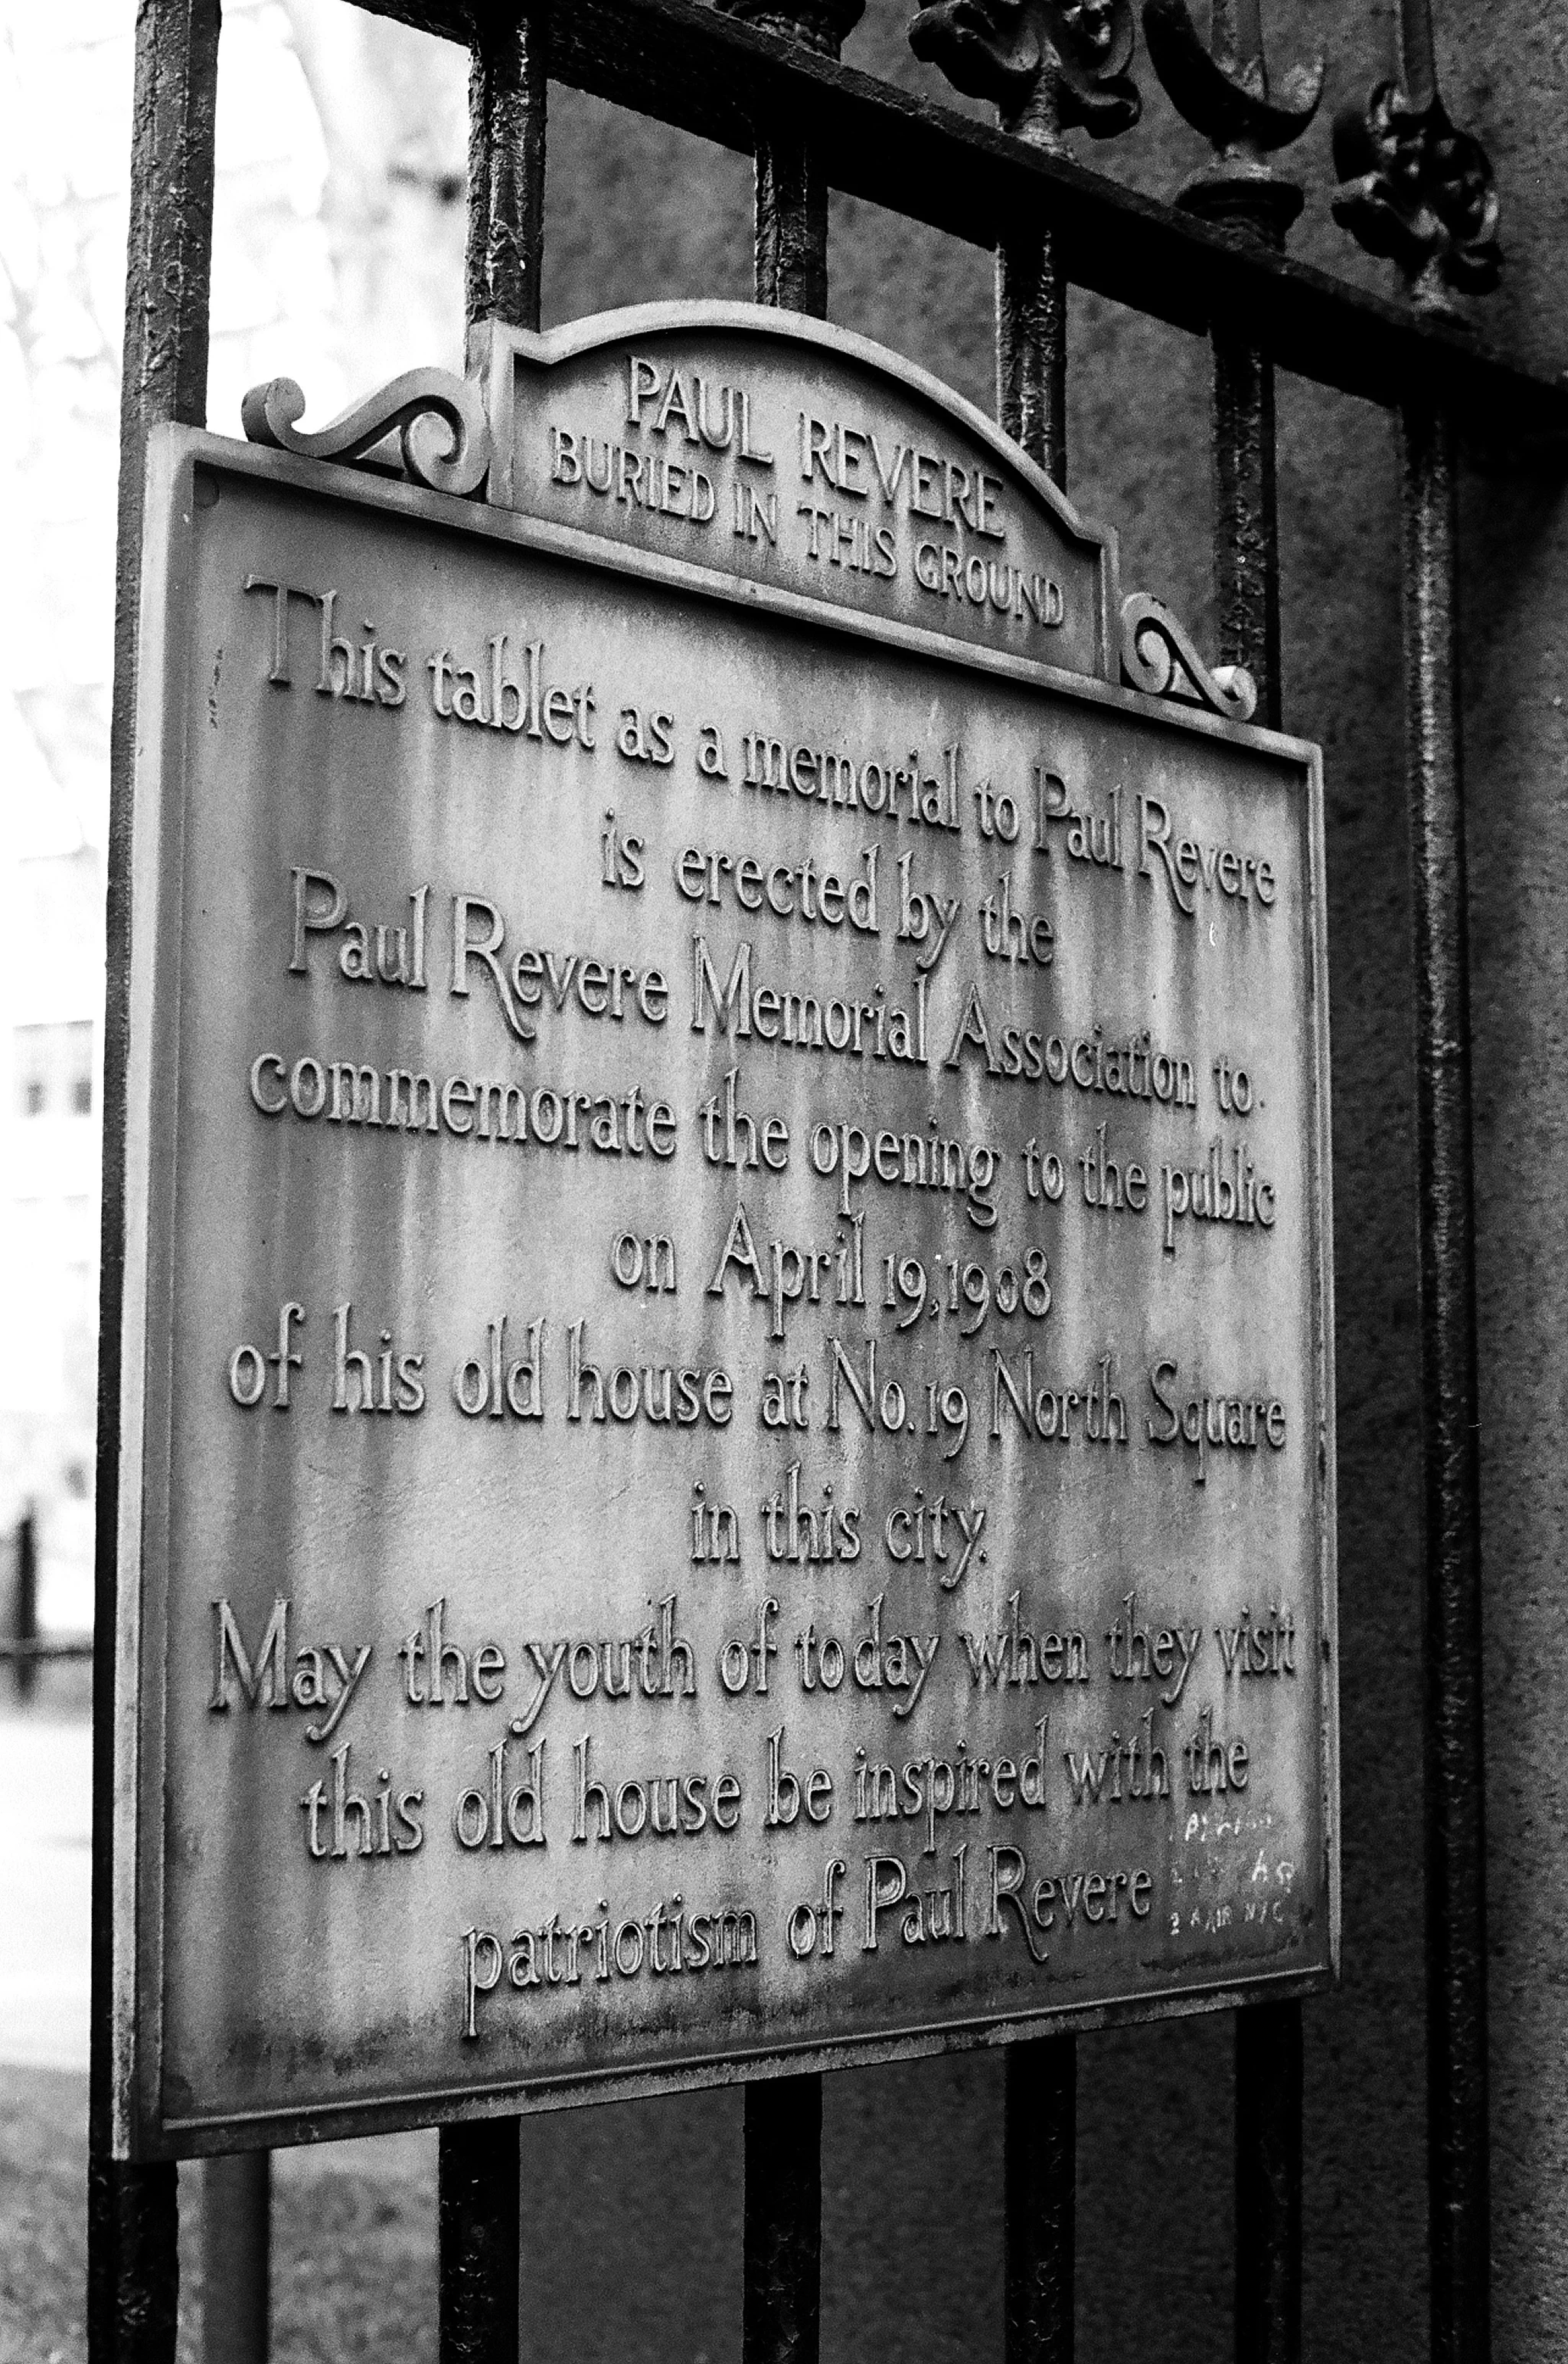 PAUL REVERE
BURIED IN THIS GROUND
This tablet as a memorial to Paul Revere
is erected by the
Paul Revere Memorial Association to
commemorate the opening to the public
on April 19, 1908
of his old house at No. 19 North Square
in this city.
May the youth of today when they visit
this old house be inspired with the
patriotism of Paul Revere